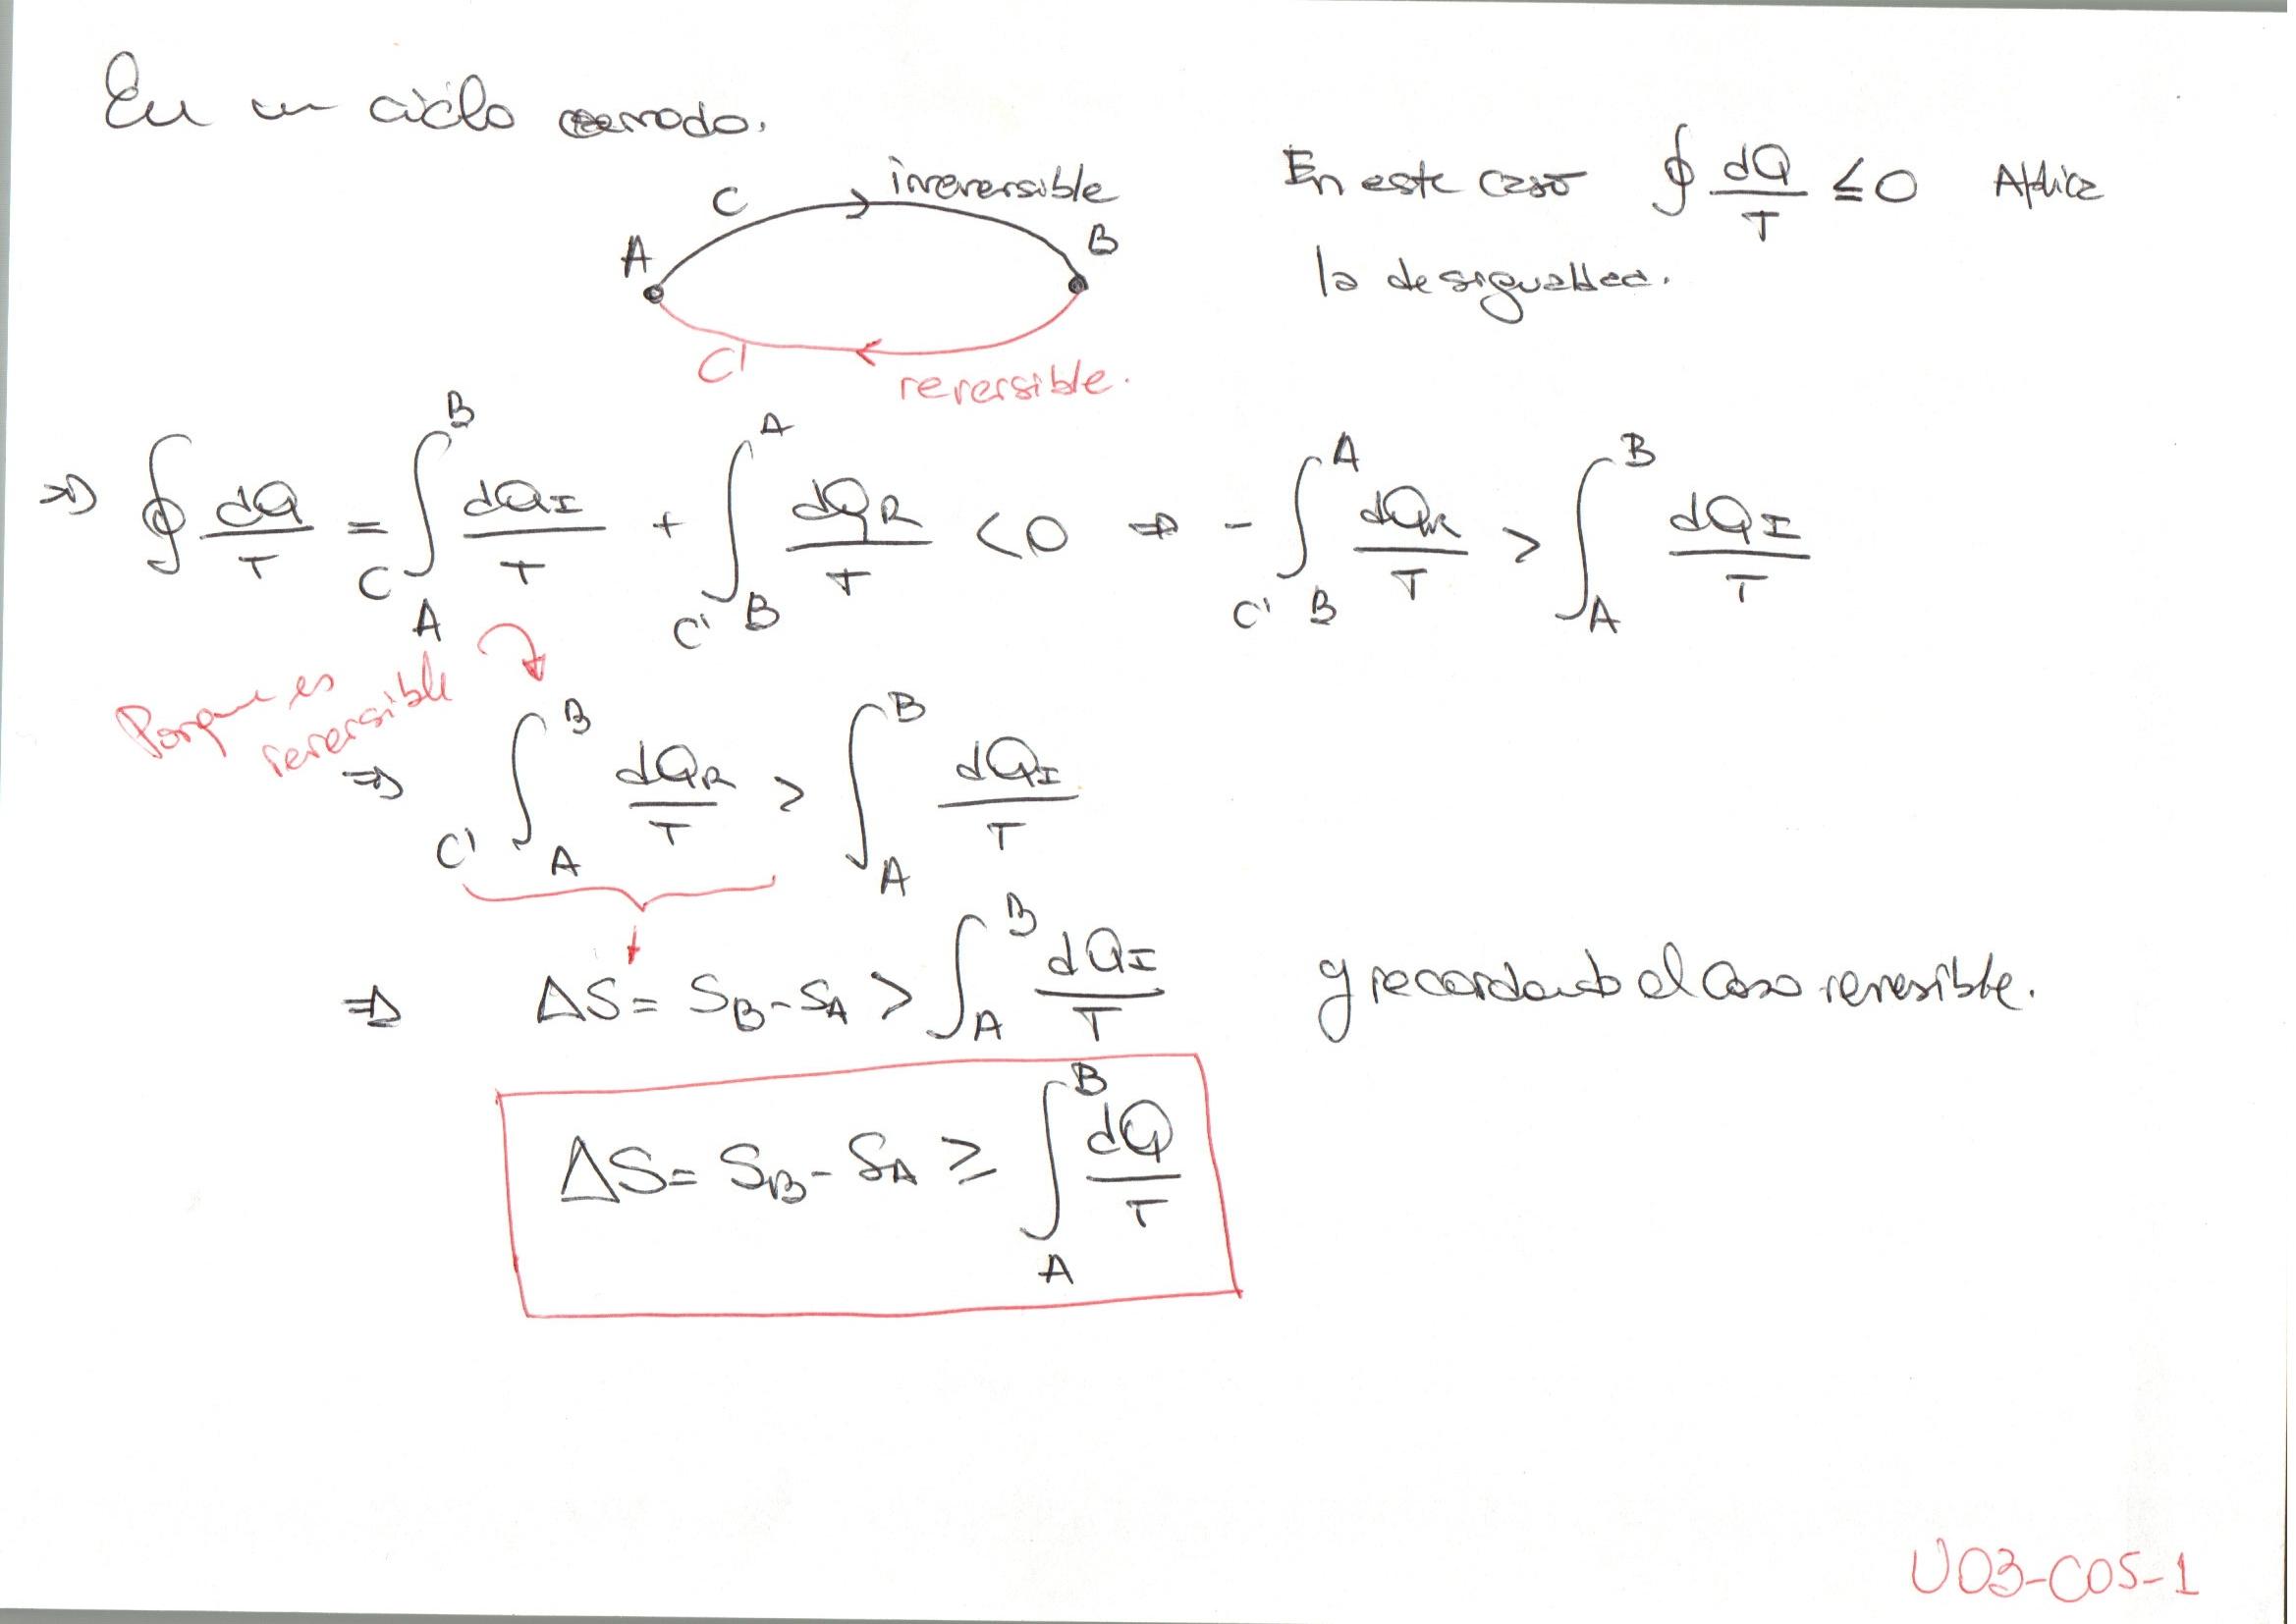 En un ciclo cerrado.
irreversible
C
A
B
C'
reversible.
En este caso ∮ dQ/T ≤ 0 Aplica
la desigualdad.
⇒ ∮ dQ/T = C ∫_A^B dQ_I/T + C' ∫_B^A dQ_R/T < 0 ⇒ - C' ∫_B^A dQ_R/T > ∫_A^B dQ_I/T
Porque es
reversible
⇒ C' ∫_A^B dQ_R/T > ∫_A^B dQ_I/T
⇒ ΔS = S_B - S_A > ∫_A^B dQ_I/T y recordando el caso reversible.
ΔS = S_B - S_A ≥ ∫_A^B dQ/T
U03-C05-1